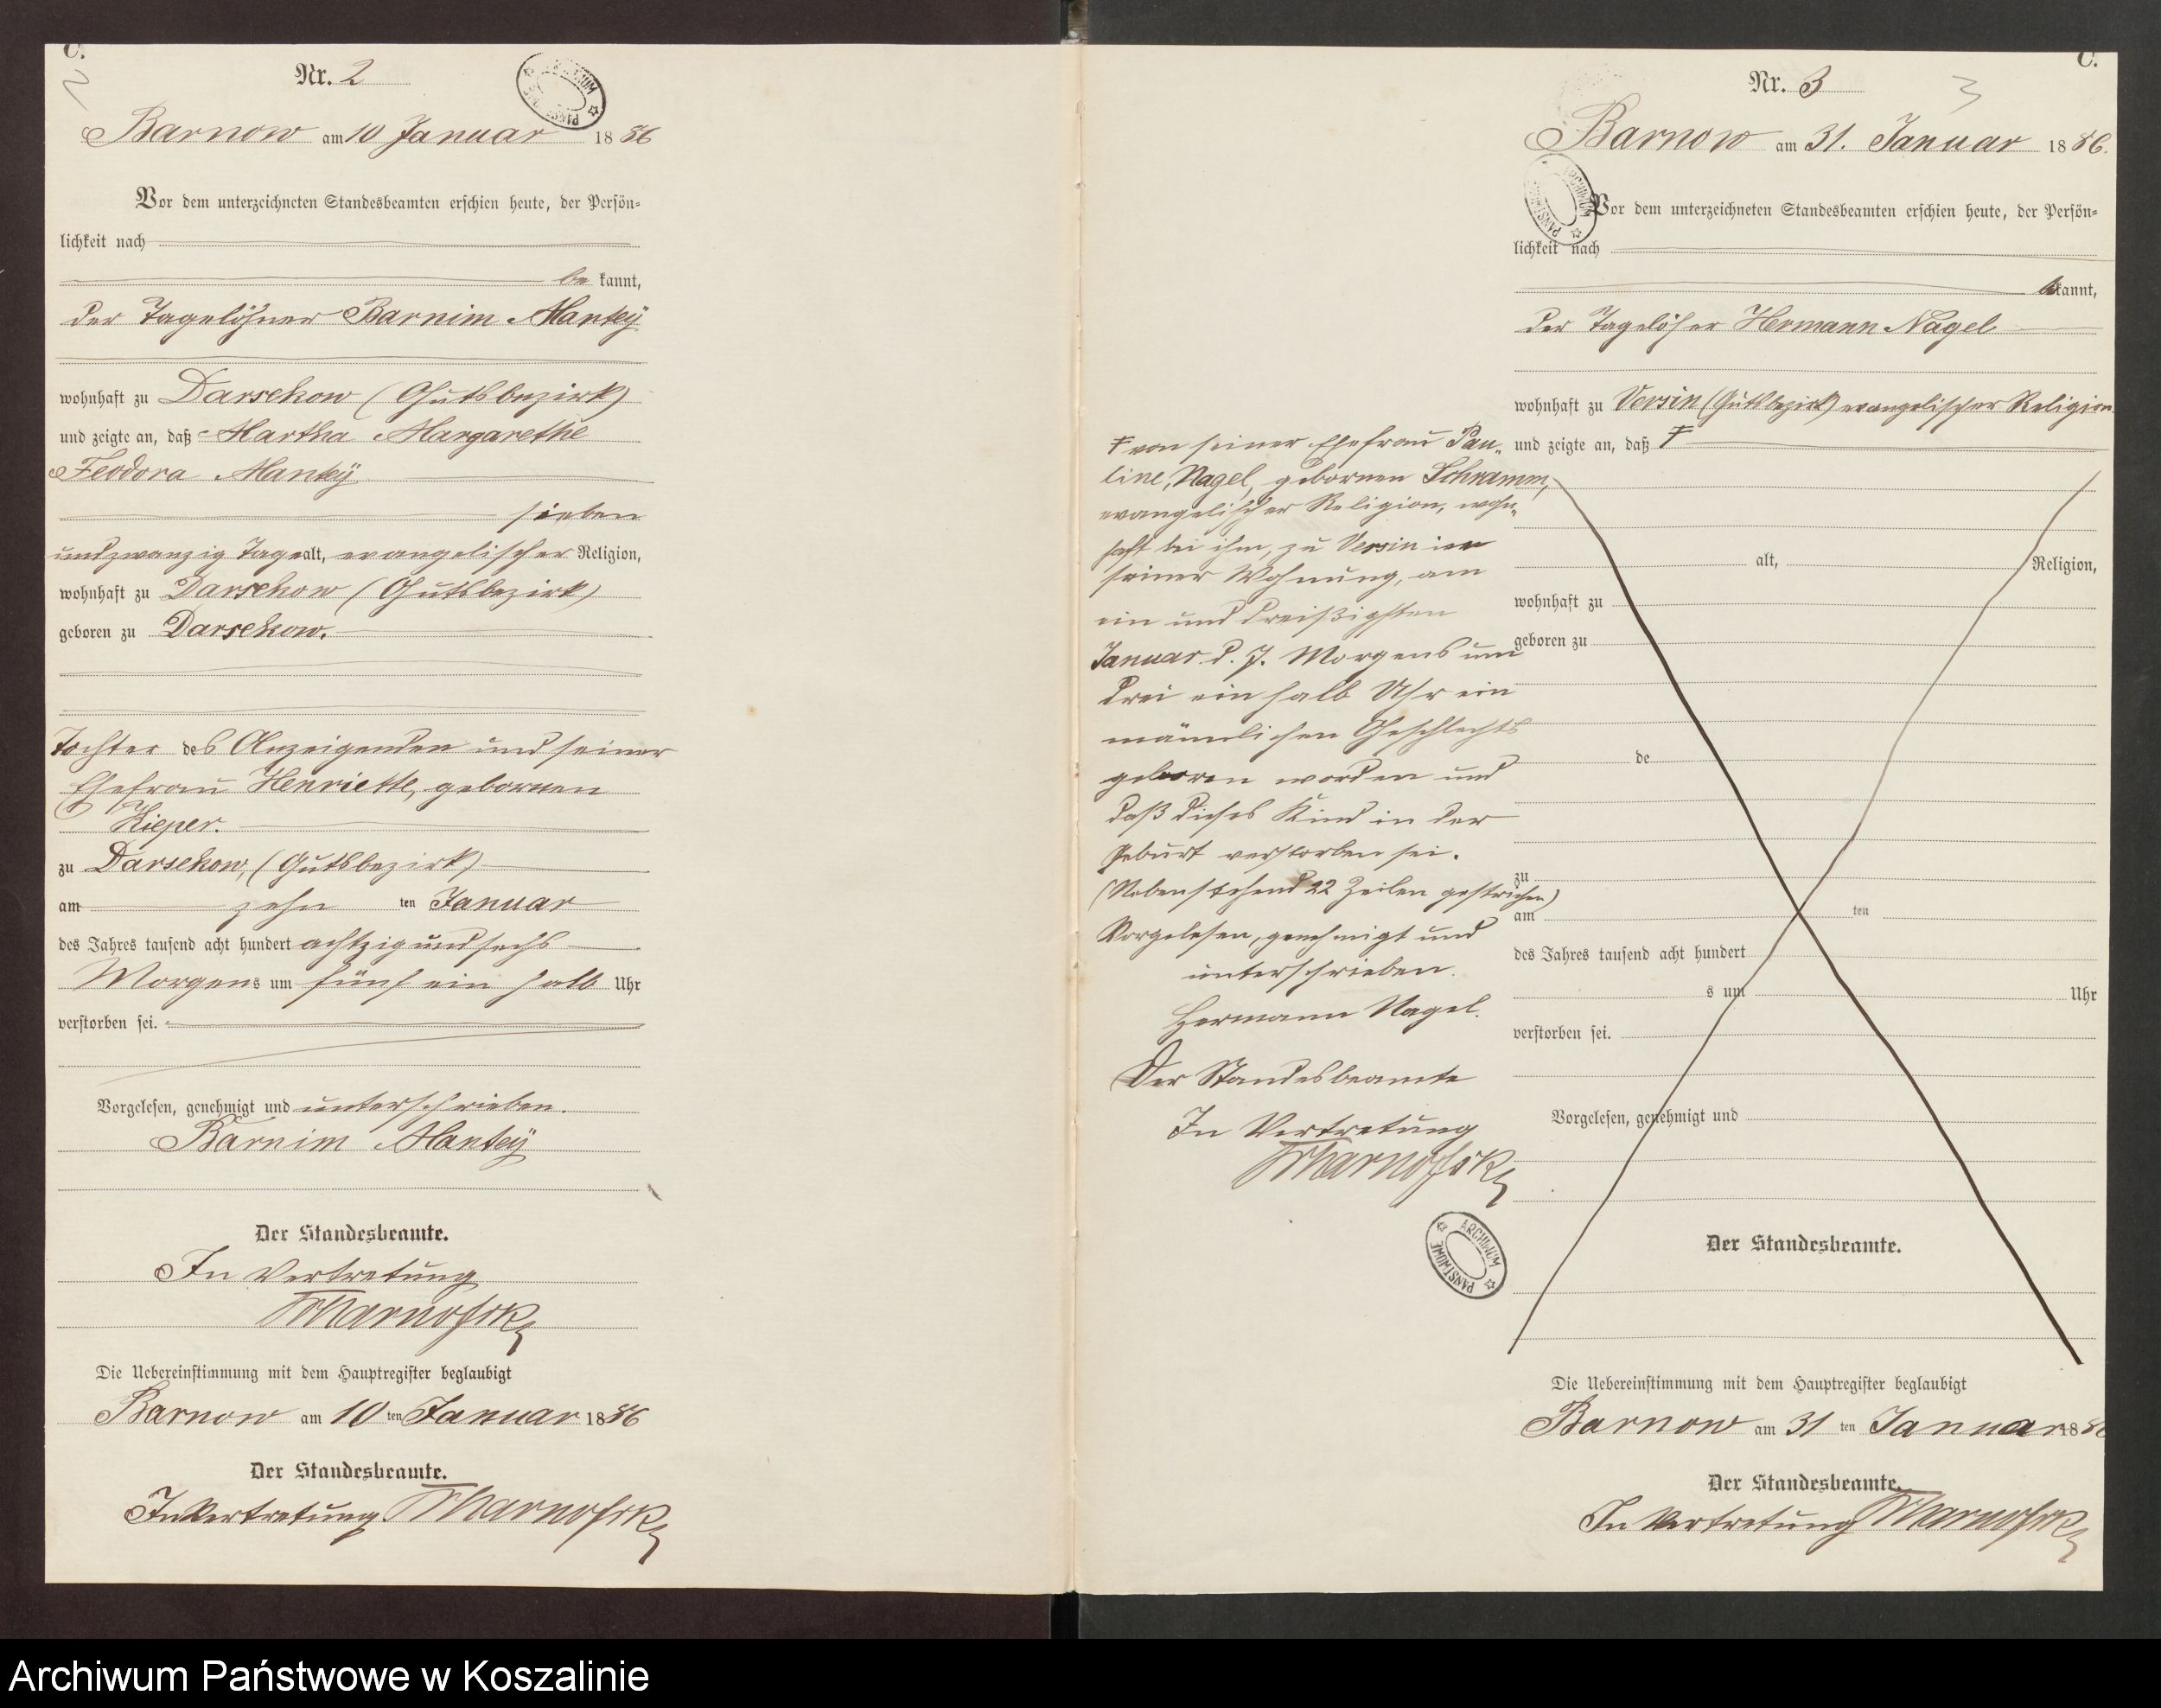 C.
2
Nr. 2
Barnow am 10 Januar 1886
Vor dem unterzeichneten Standesbeamten erschien heute, der Persön-
lichkeit nach
be kannt,
der Tagelöhner Barnim Mantey
wohnhaft zu Darsekow (Gutsbezirk)
und zeigte an, daß Martha Margarethe
Feodora Mantey
sieben
undzwanzig Tage alt, evangelischer Religion,
wohnhaft zu Darsekow (Gutsbezirk)
geboren zu Darsekow.
Tochter des Anzeigenden und seiner
Ehefrau Henriette, gebornen
Kieper.
zu Darsekow, (Gutsbezirk)
am zehn ten Januar
des Jahres tausend acht hundert achtzig und sechs
Morgens um fünf ein halb Uhr
verstorben sei.
Vorgelesen, genehmigt und unterschrieben.
Barnim Mantey
Der Standesbeamte.
In Vertretung
Die Uebereinstimmung mit dem Hauptregister beglaubigt
Barnow am 10 ten Januar 1886
Der Standesbeamte.
In Vertretung
C.
3
Nr. 3
Barnow am 31. Januar 1886.
Vor dem unterzeichneten Standesbeamten erschien heute, der Persön-
lichkeit nach
bekannt,
der Tagelöher Hermann Nagel
wohnhaft zu Versin (Gutsbezirk) evangelischer Religion
und zeigte an, daß
von seiner Ehefrau Pau-
line, Nagel, gebornen Schramm,
evangelischer Religion, wohn-
haft bei ihm, zu Versin in
seiner Wohnung, am
ein und dreißigsten
Januar d. J. Morgens um
drei ein halb Uhr ein
männlichen Geschlechts
geboren worden und
daß dieses Kind in der
Geburt verstorben sei.
(Nebenstehend 22 Zeilen gestrichen)
Vorgelesen, genehmigt und
unterschrieben.
Hermann Nagel.
Der Standesbeamte
In Vertretung
ARCHIWUM PAŃSTWOWE
alt, Religion,
wohnhaft zu
geboren zu
de
zu
am ten
des Jahres tausend acht hundert
s um Uhr
verstorben sei.
Vorgelesen, genehmigt und
Der Standesbeamte.
Die Uebereinstimmung mit dem Hauptregister beglaubigt
Barnow am 31 ten Januar 1886
Der Standesbeamte.
In Vertretung
Archiwum Państwowe w Koszalinie